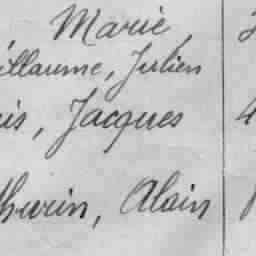 Marie,
illaume, Julien
is, Jacques 4
thurin, Alain